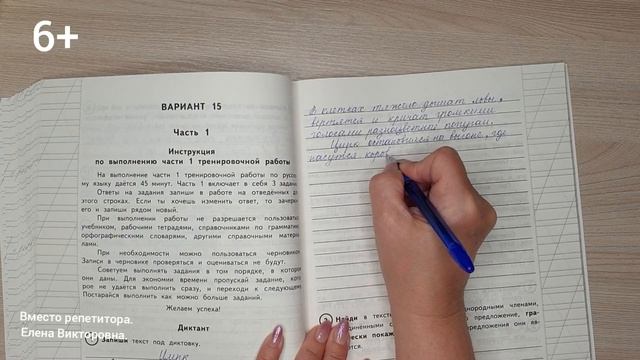 6+
ВАРИАНТ 15
Часть 1
Инструкция
по выполнению части 1 тренировочной работы
На выполнение части 1 тренировочной работы по русско
му языку даётся 45 минут. Часть 1 включает в себя 3 задани
Ответы на задания запиши в работе на отведённых д
этого строках. Если ты хочешь изменить ответ, то зачерк
его и запиши рядом новый.
При выполнении работы не разрешается пользоватьс
учебником, рабочими тетрадями, справочниками по грамматик
орфографическими словарями, другими справочными матери
лами.
При необходимости можно пользоваться черновик
Записи в черновике проверяться и оцениваться не будут.
Советуем выполнять задания в том порядке, в котором
они даны. Для экономии времени пропускай задание, кото
рое не удаётся выполнить сразу, и переходи к следующему
Постарайся выполнить как можно больше заданий.
Желаем успеха!
Диктант
1 Запиши текст под диктовку.
Цирк
В клетках тяжело дышат львы,
вертятся и кричат громкими
голосами разноцветные попугаи.
Цирк остановился на выгоне, где
пасутся коров
2 Найди в тексте однородными членами,
единёнными предложение, гра-
чески покаж предложения они яв-
тся.
Вместо репетитора.
Елена Викторовна